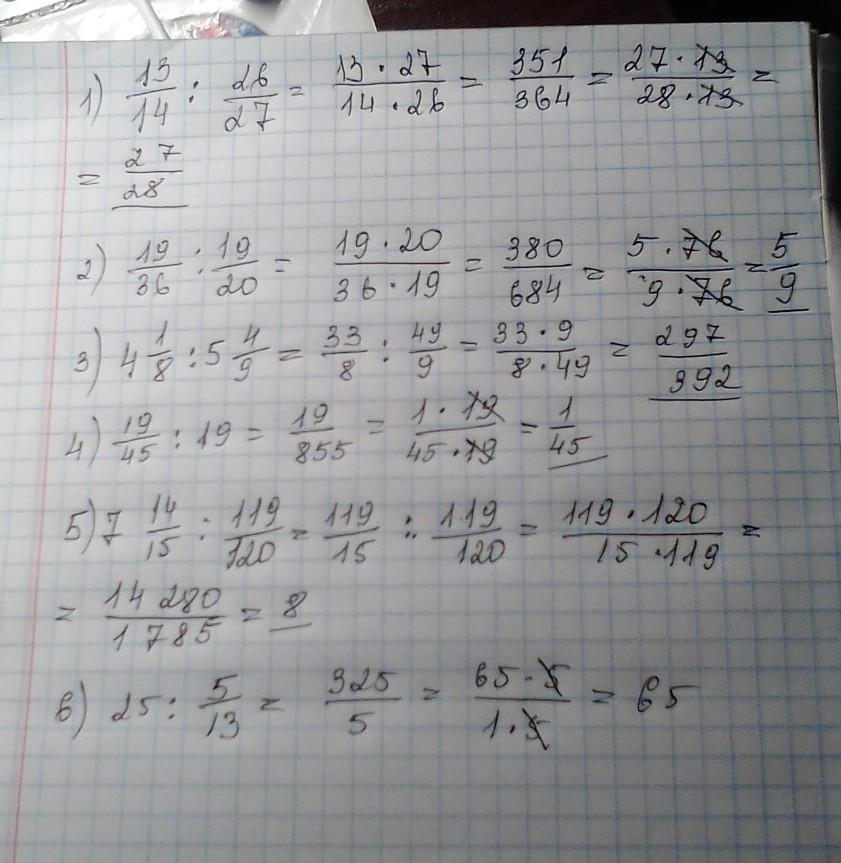 1) 13/14 : 26/27 = 13 · 27/14 · 26 = 351/364 = 27 · 13/28 · 13 =
= 27/28
2) 19/36 : 19/20 = 19 · 20/36 · 19 = 380/684 = 5 · 76/9 · 76 = 5/9
3) 4 1/8 : 5 4/9 = 33/8 : 49/9 = 33 · 9/8 · 49 = 297/392
4) 19/45 : 19 = 19/855 = 1 · 19/45 · 19 = 1/45
5) 7 14/15 : 119/120 = 119/15 : 119/120 = 119 · 120/15 · 119 =
= 14 280/1 785 = 8
6) 25 : 5/13 = 325/5 = 65 · 5/1 · 5 = 65